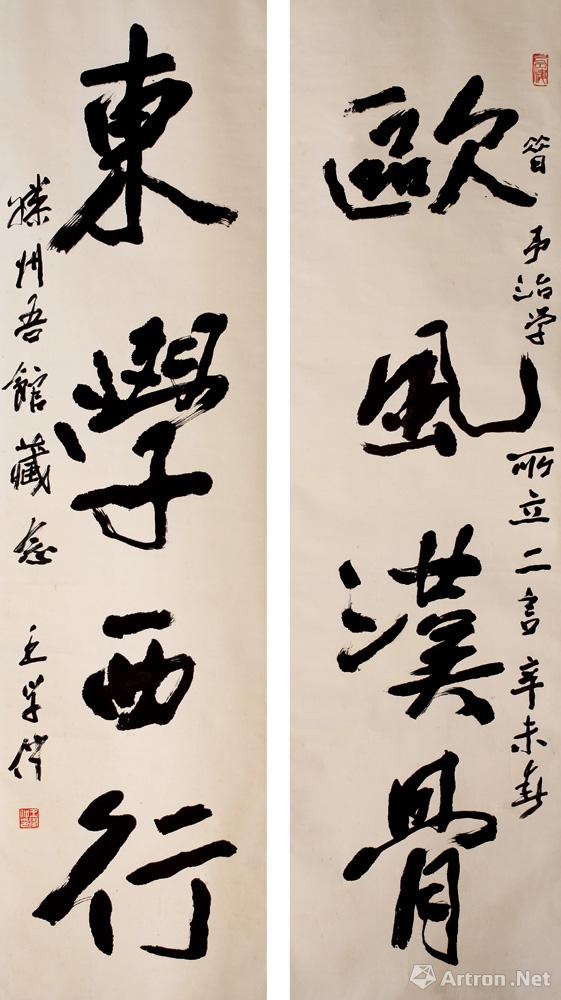 歐風漢骨
昔予治学所立二言辛未春
東學西行
滕州吾館藏念
王学仲
Artron.Net